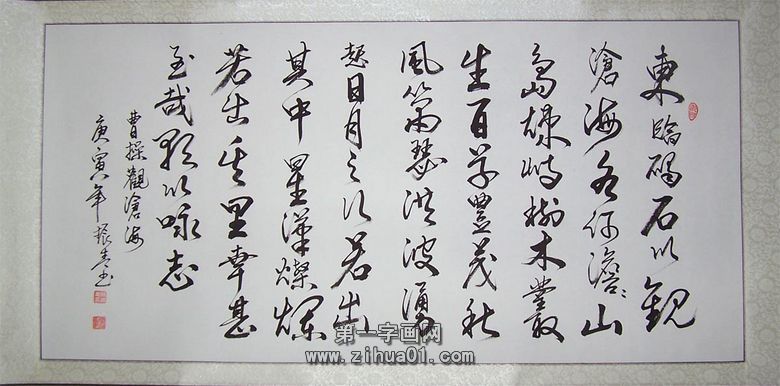 東臨碣石以觀
滄海水何澹澹山
島竦峙樹木叢
生百草豐茂秋
風蕭瑟洪波涌
起日月之行若出
其中星漢燦爛
若出其里幸甚
至哉歌以咏志
曹操觀滄海
庚寅年振春書
第一字画网
www.zihua01.com